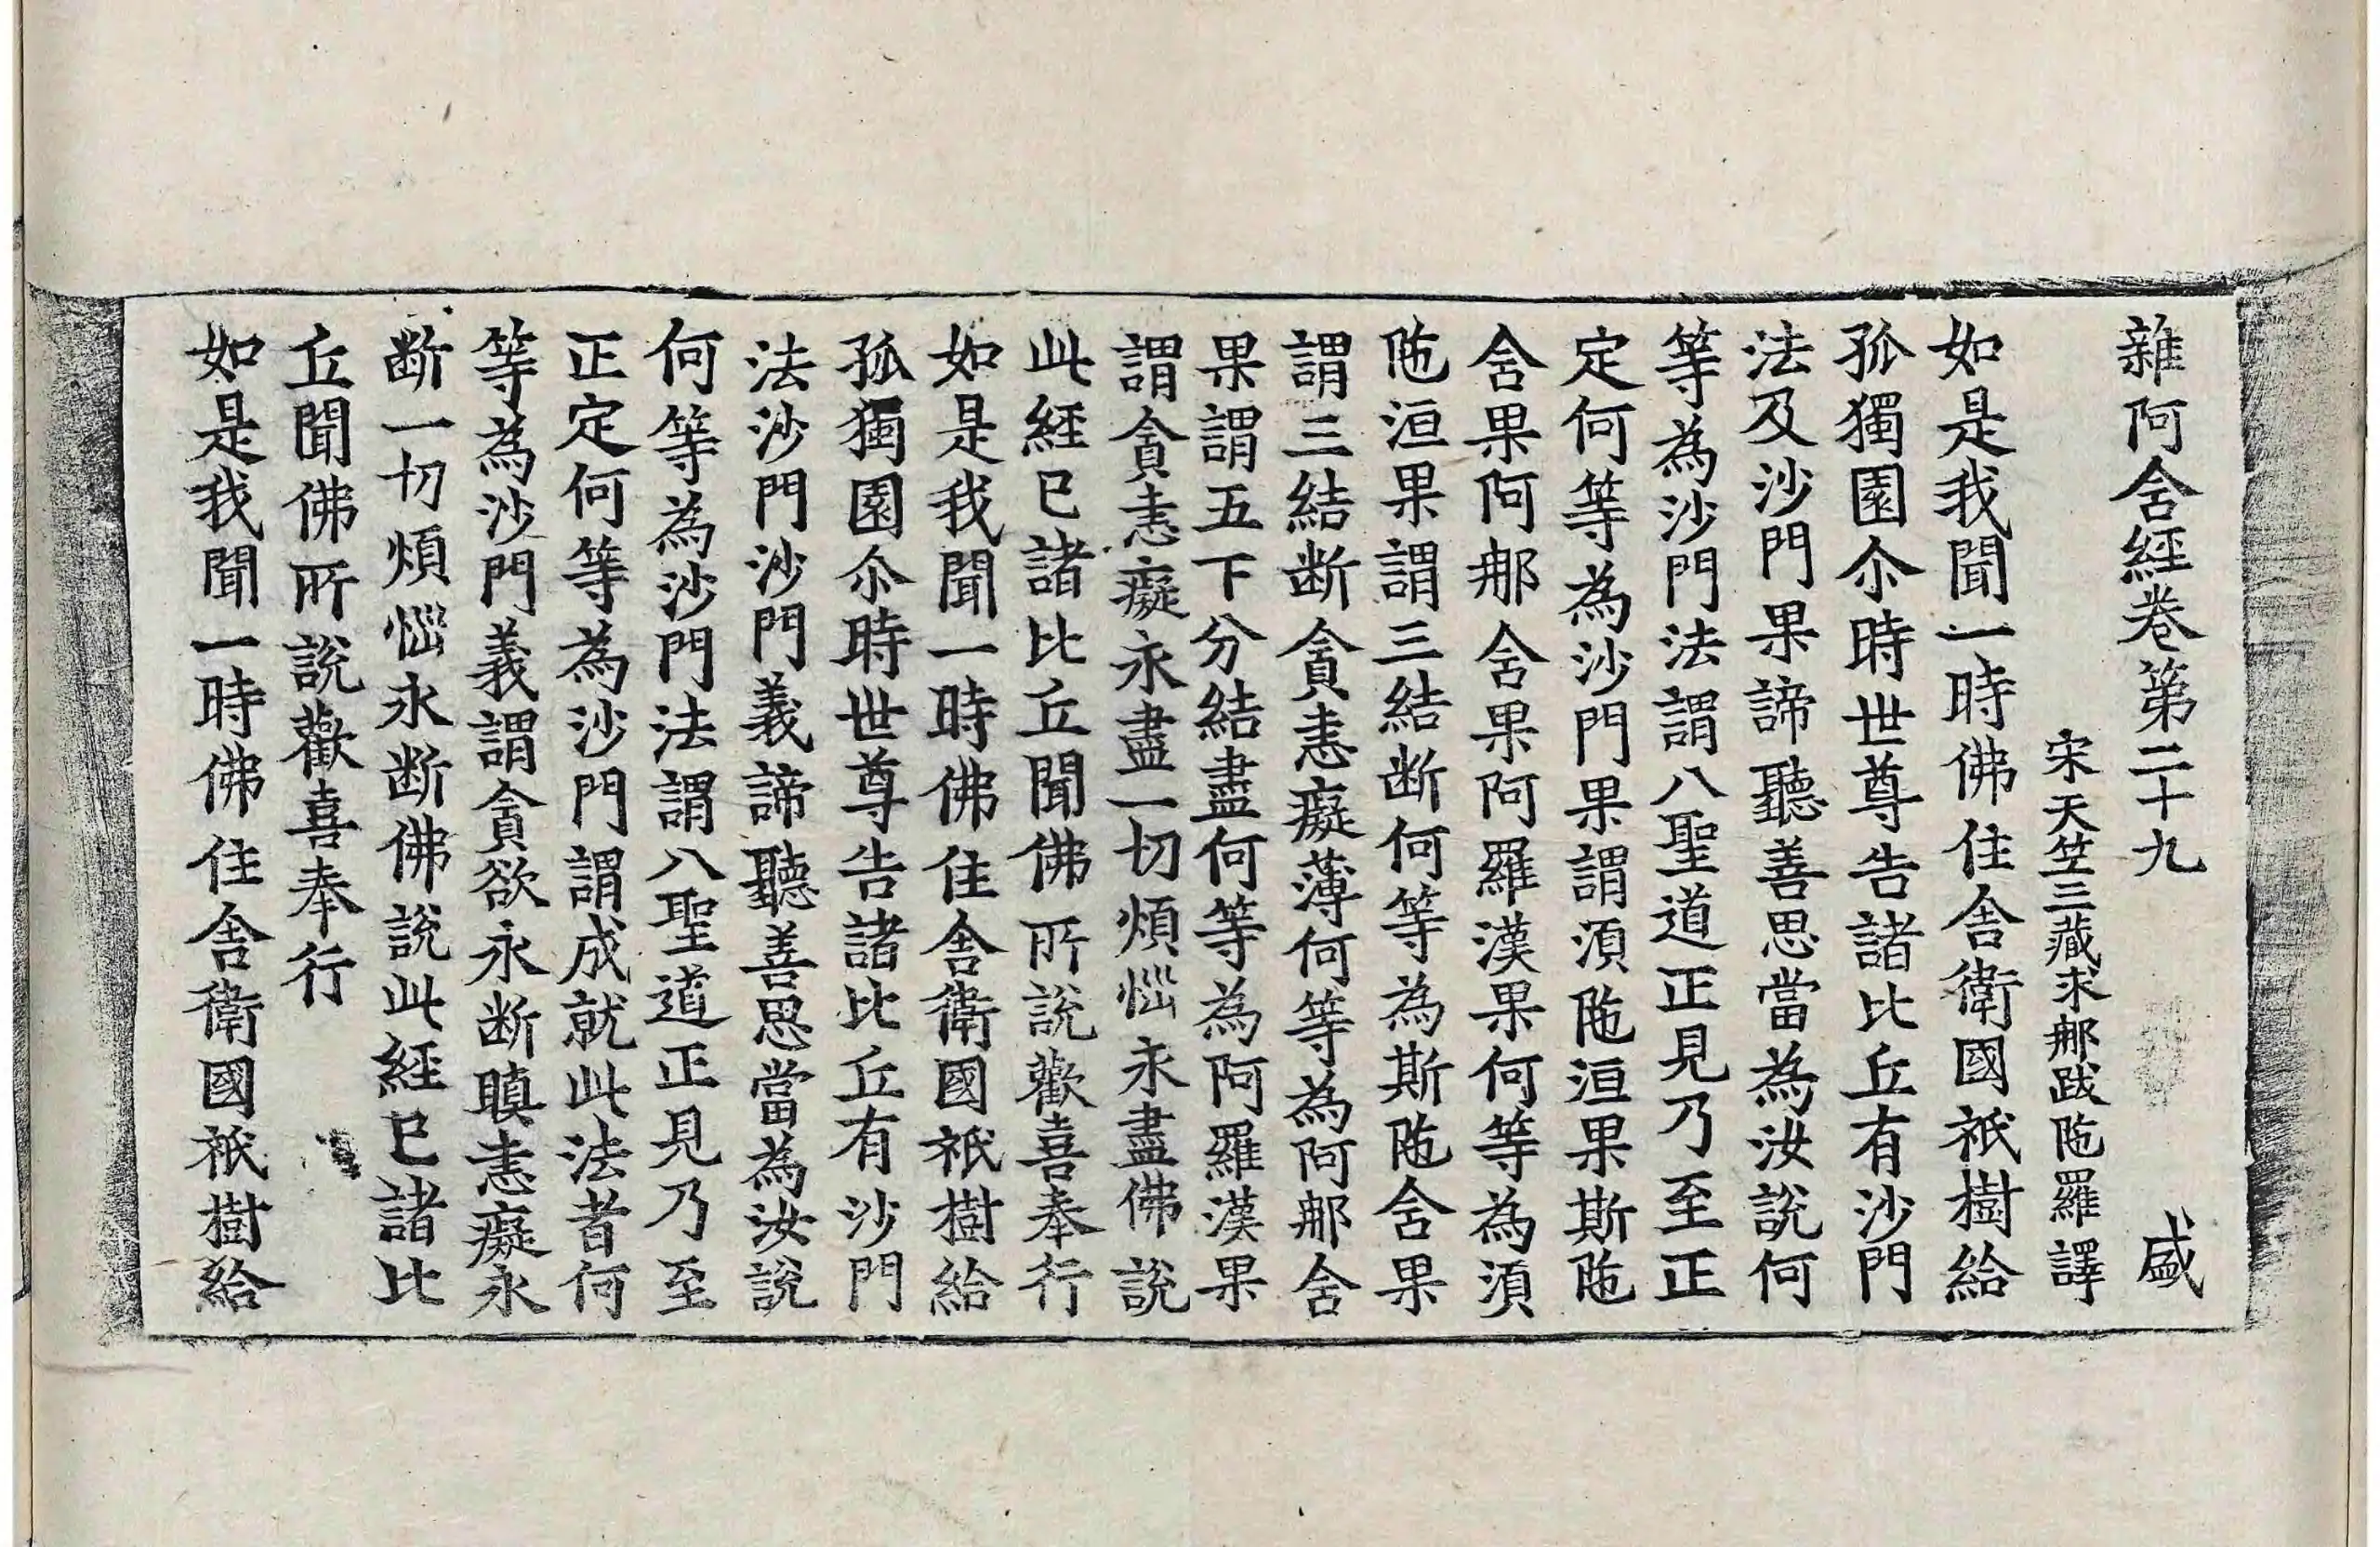 雜阿含經卷第二十九　盛
宋天竺三藏求那跋陁羅譯
如是我聞一時佛住舍衛國祇樹給
孤獨園尒時世尊告諸比丘有沙門
法及沙門果諦聽善思當為汝說何
等為沙門法謂八聖道正見乃至正
定何等為沙門果謂湏陁洹果斯陁
含果阿那含果阿羅漢果何等為湏
陁洹果謂三結断何等為斯陁含果
謂三結断貪恚癡薄何等為阿那含
果謂五下分結盡何等為阿羅漢果
謂貪恚癡永盡一切煩惱永盡佛說
此經已諸比丘聞佛所說歡喜奉行
如是我聞一時佛住舍衛國祇樹給
孤獨園尒時世尊告諸比丘有沙門
法沙門沙門義諦聽善思當為汝說
何等為沙門法謂八聖道正見乃至
正定何等為沙門謂成就此法者何
等為沙門義謂貪欲永断瞋恚癡永
断一切煩惱永断佛說此經已諸比
丘聞佛所說歡喜奉行
如是我聞一時佛住舍衛國祇樹給